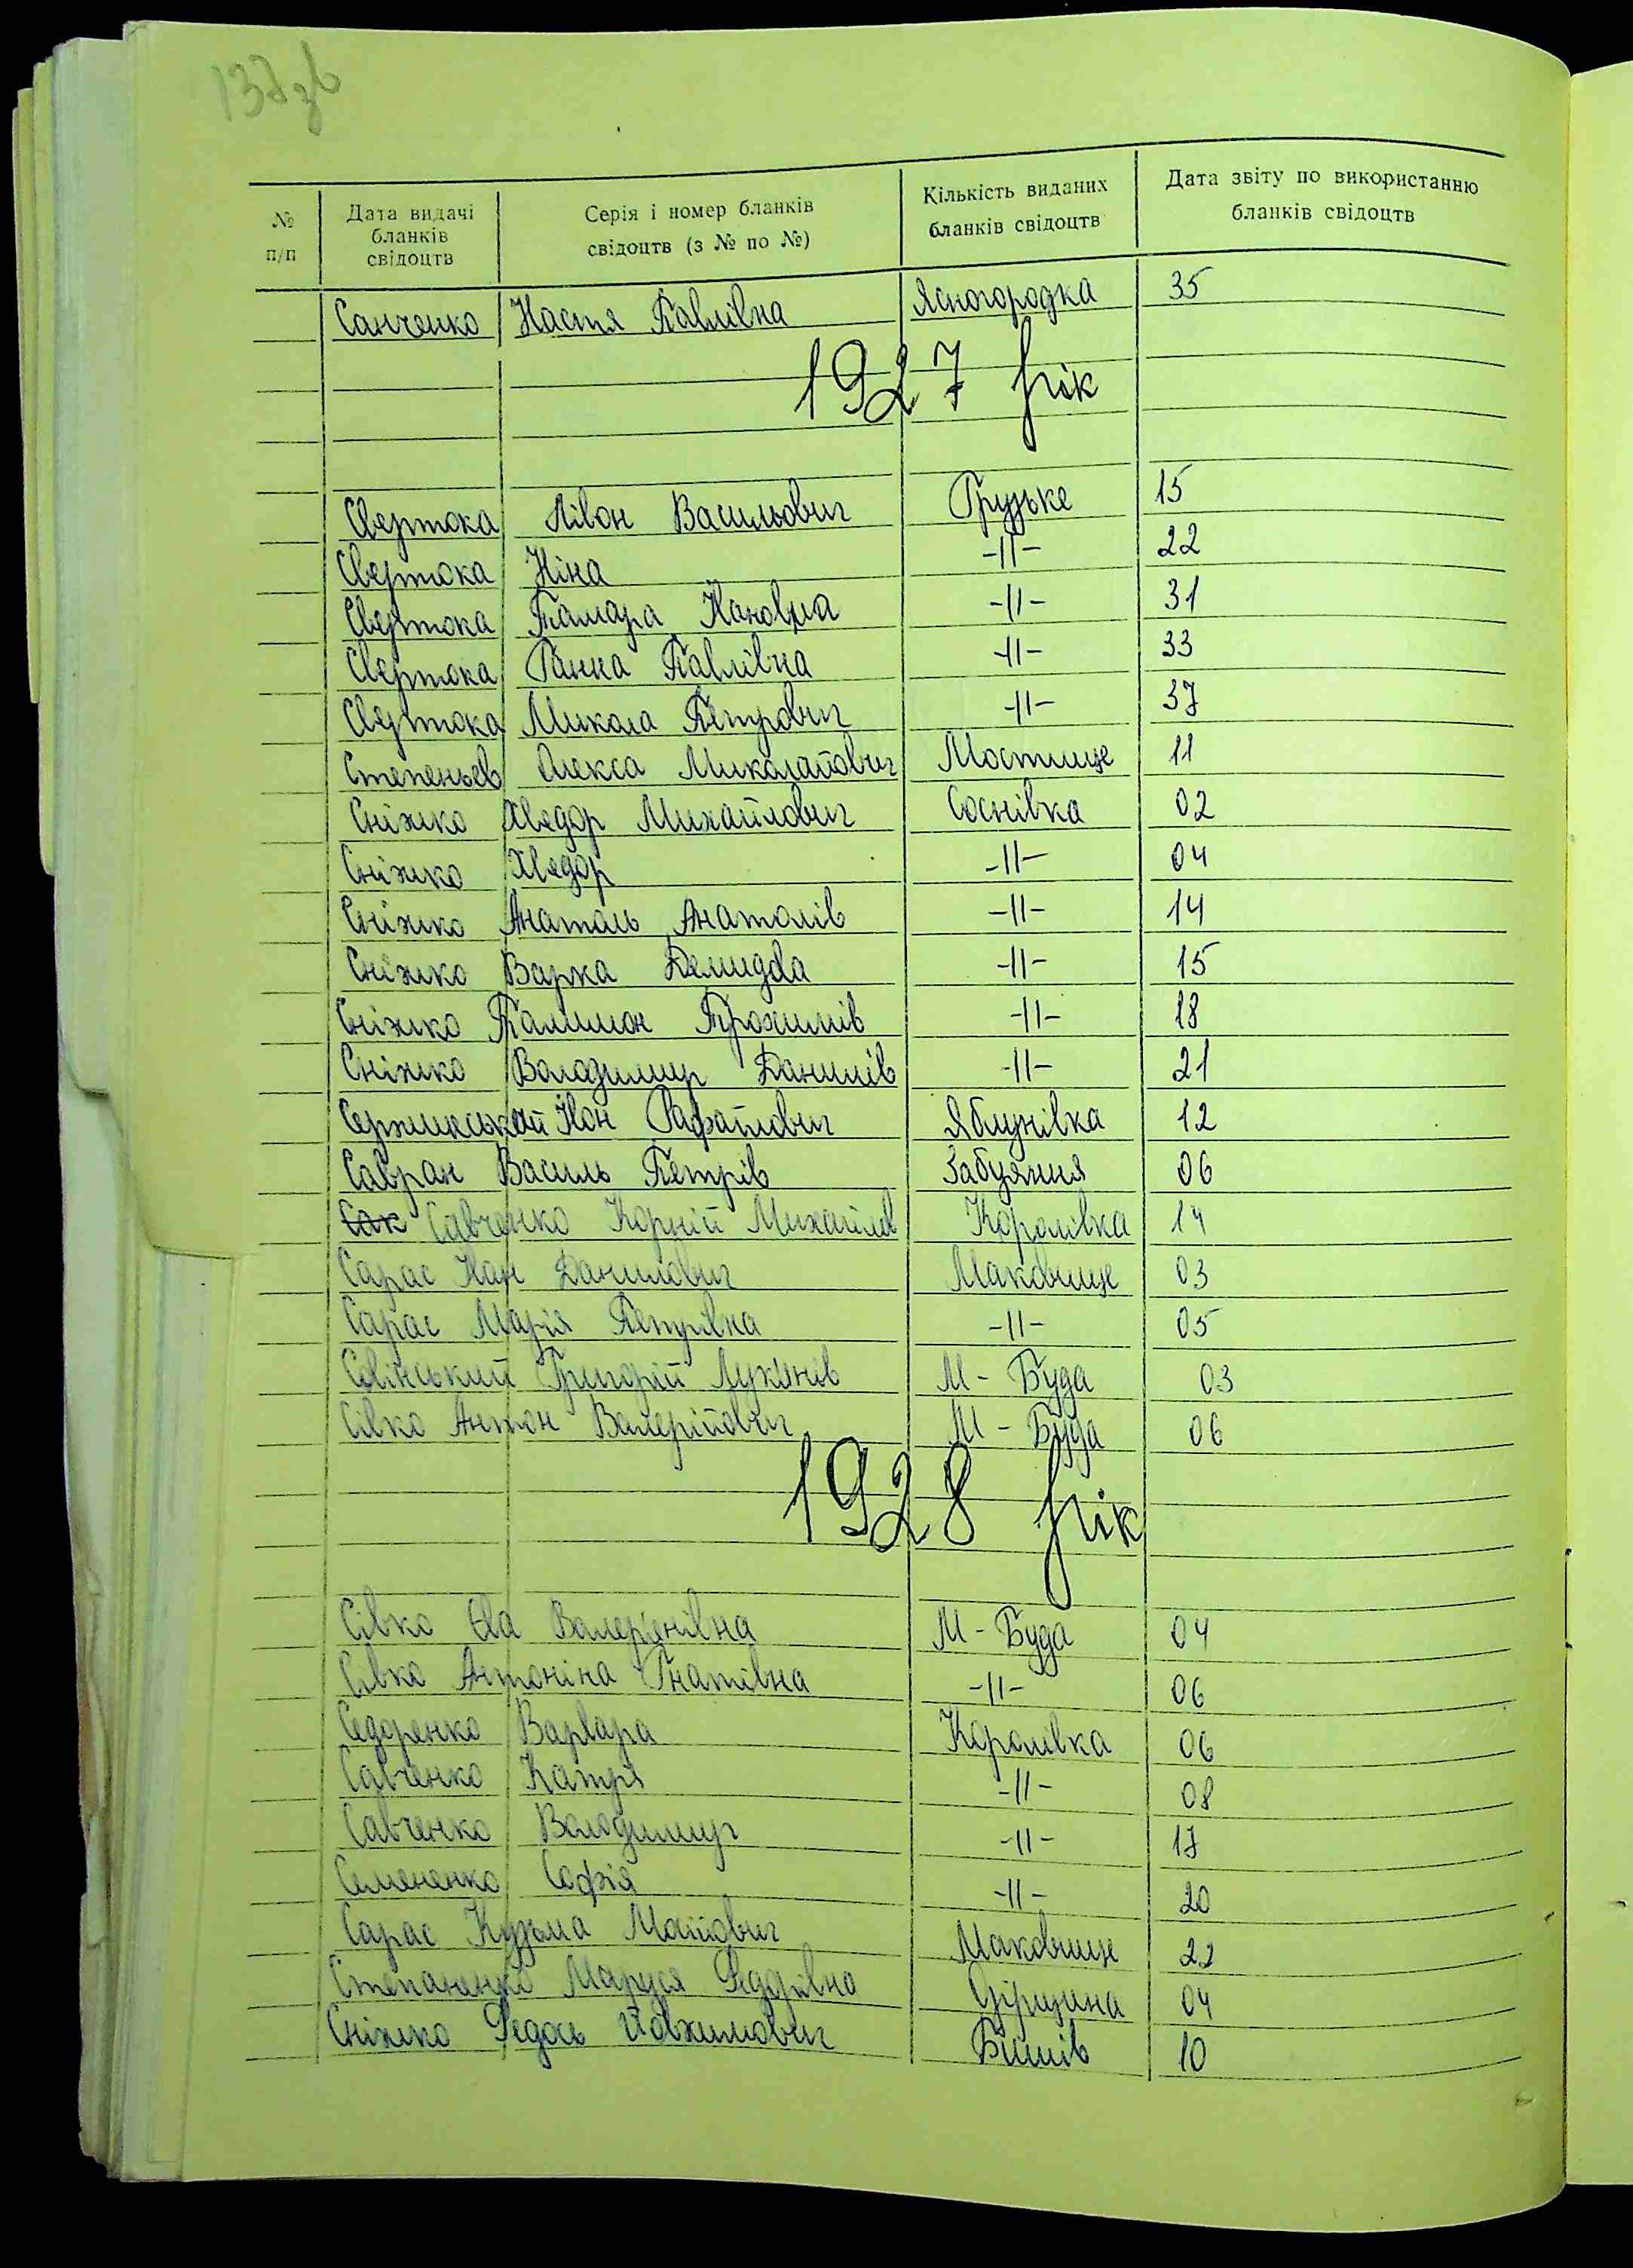 137зв
№ п/п | Дата видачі бланків свідоцтв | Серія і номер бланків свідоцтв (з № по №) | Кількість виданих бланків свідоцтв | Дата звіту по використанню бланків свідоцтв
Санченко Настя Павлівна Ясногородка 35
1927 рік
Свертока Лівон Васильович Грузьке 15
Свертока Ніна -//- 22
Свертока Тамара Йановна -//- 31
Свертока Ганка Павлівна -//- 33
Свертока Микола Петрович -//- 37
Степеньєв Олекса Миколайович Мостище 11
Сніжко Хведор Михайлович Соснівка 02
Сніжко Хведор -//- 04
Сніжко Анатоль Анатолів -//- 14
Сніжко Варка Демидова -//- 15
Сніжко Палимон Трохимів -//- 18
Сніжко Володимир Данилів -//- 21
Сержинський Йон Рафайлович Яблунівка 12
Савран Василь Петрів Забуяння 06
Сак Савченко Корній Михайлів Королівка 14
Сарас Йан Данилович Маковище 03
Сарас Марія Петрівна -//- 05
Савінський Григорій Лук'янів М-Буда 03
Сівко Антон Валерійович М-Буда 06
1928 рік
Сівко Єва Валер'янівна М-Буда 04
Сівко Антоніна Гнатівна -//- 06
Сидоренко Варвара Королівка 06
Савченко Катря -//- 08
Савченко Володимир -//- 17
Семененко Софія -//- 20
Сарас Кузьма Мойович Маковище 22
Степаненко Маруся Федорівна 04
Сніжко Федось Йовхимович Бишів 10